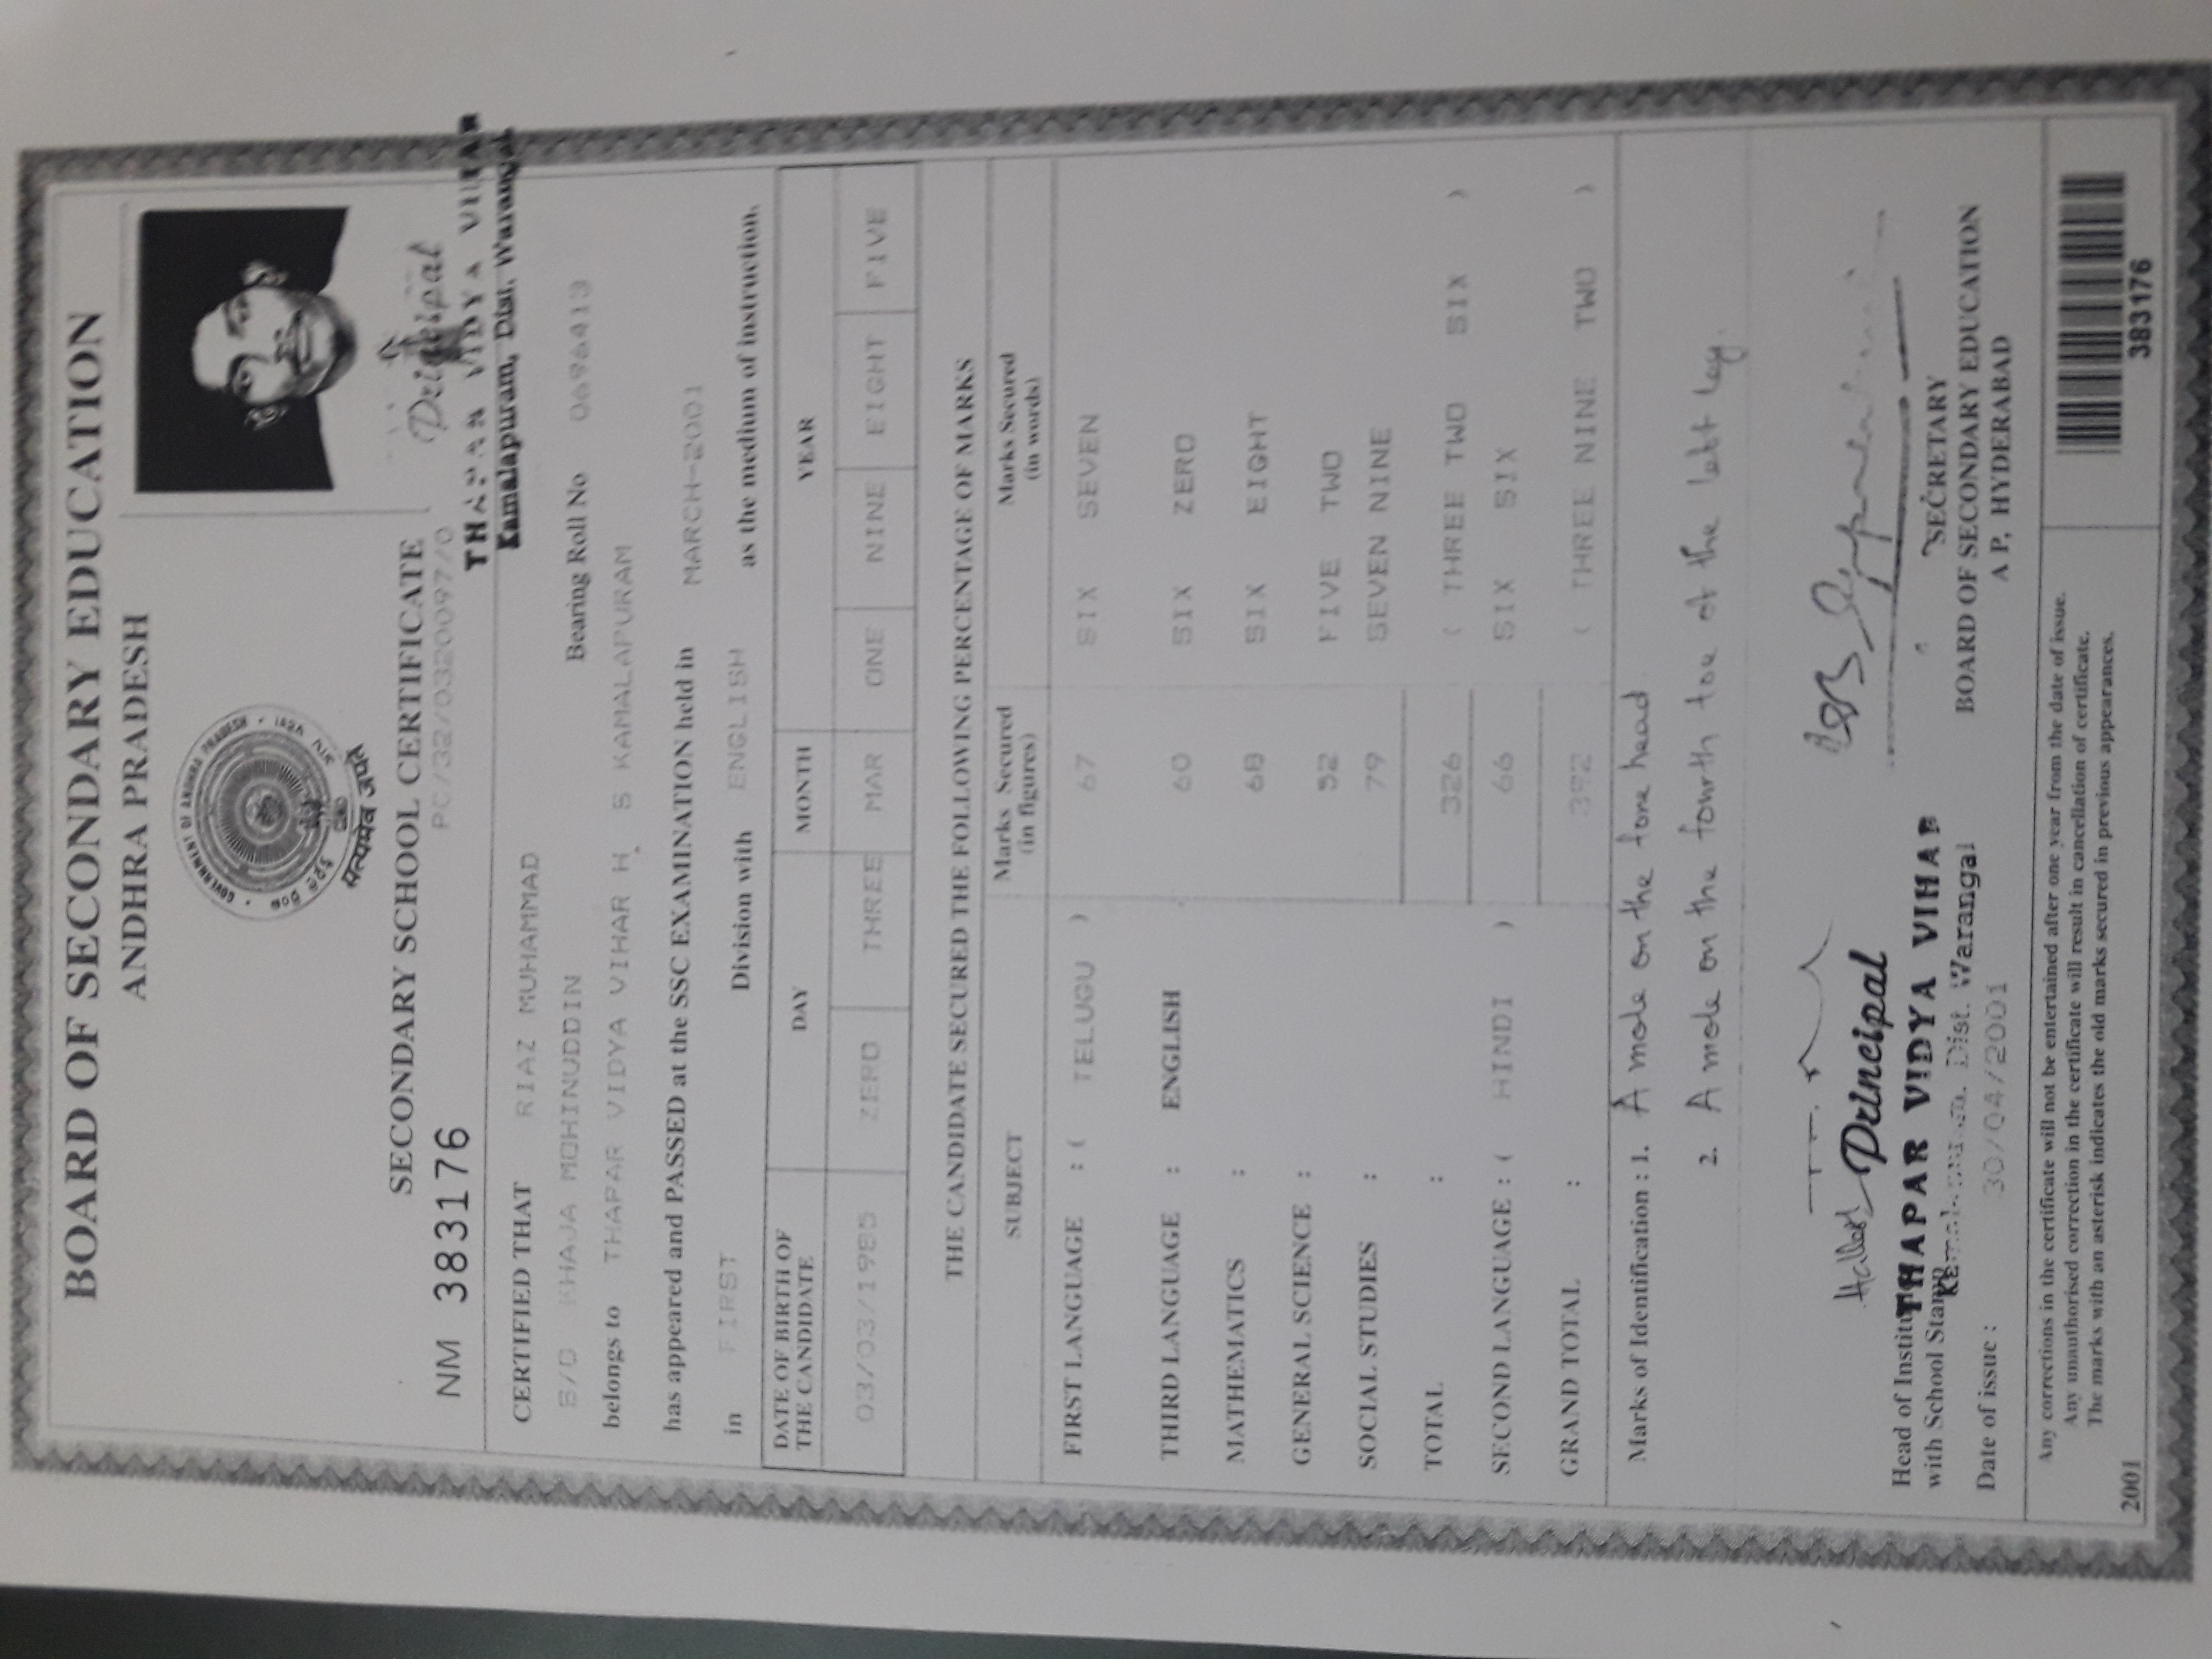 BOARD OF SECONDARY EDUCATION
ANDHRA PRADESH
GOVERNMENT OF ANDHRA PRADESH
सत्यमेव जयते
SECONDARY SCHOOL CERTIFICATE
NM 383176
PC/32/0320097/0
Principal
THAPAR VIDYA VIHAR
Kamalapuram, Dist. Warangal
CERTIFIED THAT RIAZ MUHAMMAD
S/O KHAJA MOHINUDDIN Bearing Roll No 0696413
belongs to THAPAR VIDYA VIHAR H. S KAMALAPURAM
has appeared and PASSED at the SSC EXAMINATION held in MARCH-2001
in FIRST Division with ENGLISH as the medium of instruction.
DATE OF BIRTH OF THE CANDIDATE DAY MONTH YEAR
03/03/1985 ZERO THREE MAR ONE NINE EIGHT FIVE
THE CANDIDATE SECURED THE FOLLOWING PERCENTAGE OF MARKS
SUBJECT Marks Secured (in figures) Marks Secured (in words)
FIRST LANGUAGE : ( TELUGU ) 67 SIX SEVEN
THIRD LANGUAGE : ENGLISH 60 SIX ZERO
MATHEMATICS : 68 SIX EIGHT
GENERAL SCIENCE : 52 FIVE TWO
SOCIAL STUDIES : 79 SEVEN NINE
TOTAL : 326 ( THREE TWO SIX )
SECOND LANGUAGE : ( HINDI ) 66 SIX SIX
GRAND TOTAL : 392 ( THREE NINE TWO )
Marks of Identification : 1. A mole on the fore head
2. A mole on the fourth toe of the left leg.
Principal
Head of Institution
with School Stamp
THAPAR VIDYA VIHAR
Kamalapuram. Dist. Warangal
Date of issue : 30/04/2001
SECRETARY
BOARD OF SECONDARY EDUCATION
A P, HYDERABAD
Any corrections in the certificate will not be entertained after one year from the date of issue.
Any unauthorised correction in the certificate will result in cancellation of certificate.
The marks with an asterisk indicates the old marks secured in previous appearances.
2001
383176